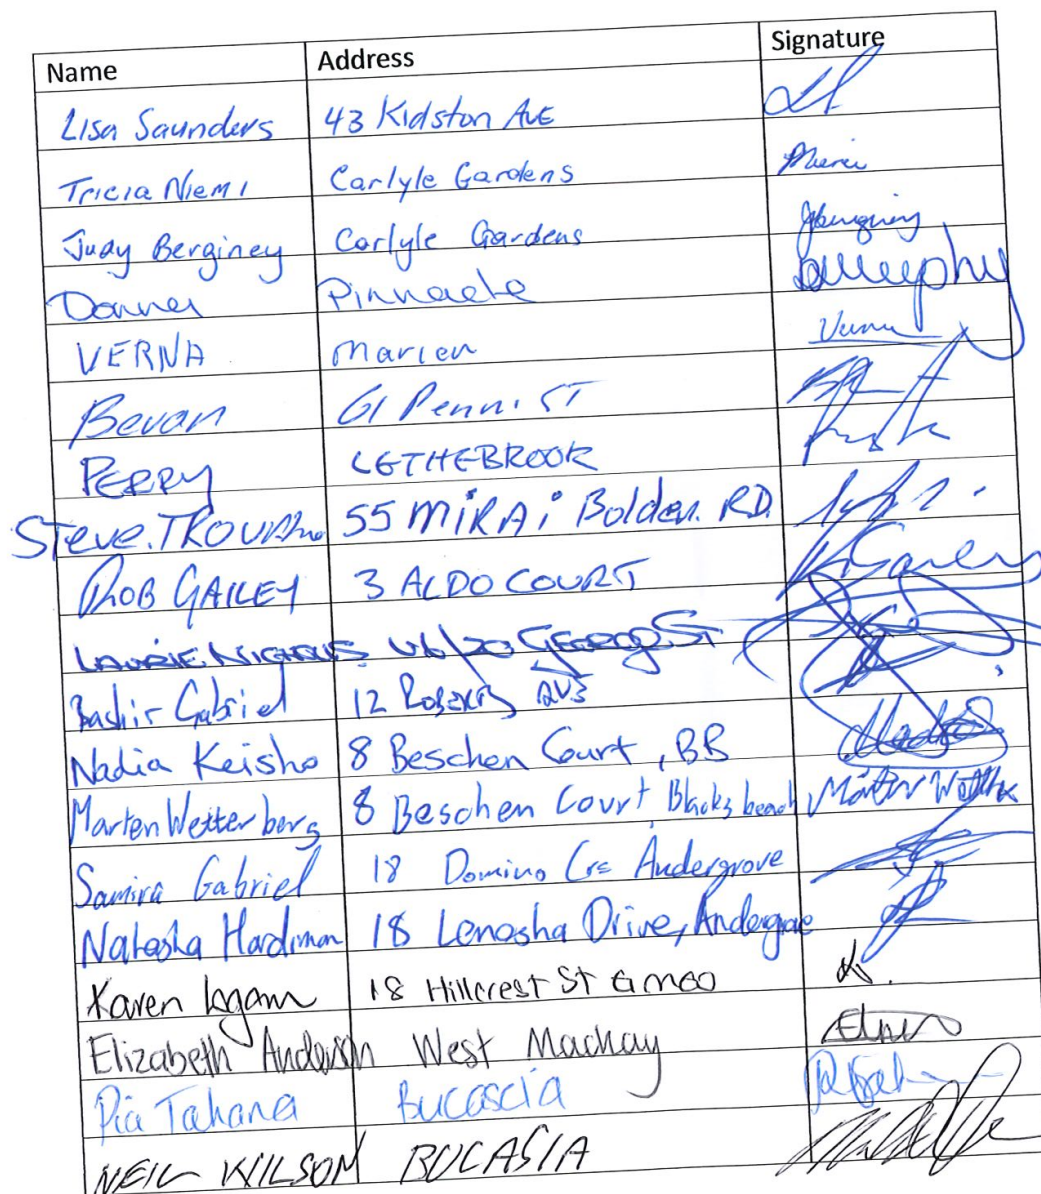 Name Address Signature
Lisa Saunders 43 Kidston Ave
Tricia Niemi Carlyle Gardens
Judy Berginey Carlyle Gardens
Pinnacle
VERNA Marian
Bevan
PERRY LETHEBROOK
Steve. 55 Bolden. RD.
ROB GAILEY 3 ALDO COURT
LAURIE NICHOLLS U6/20 George St
Bashir Gabriel 12 AVE
Nadia Keisho 8 Beschen Court, BB
Marten Wetterberg 8 Beschen Court, Blacks beach
Samira Gabriel 18 Domino Cre Andergrove
Natasha Hardiman 18 Lenosha Drive,
Karen 18 Hillcrest St
Elizabeth Anderson West Mackay
Pia Tahana Bucascia
NEIL WILSON BUCASIA